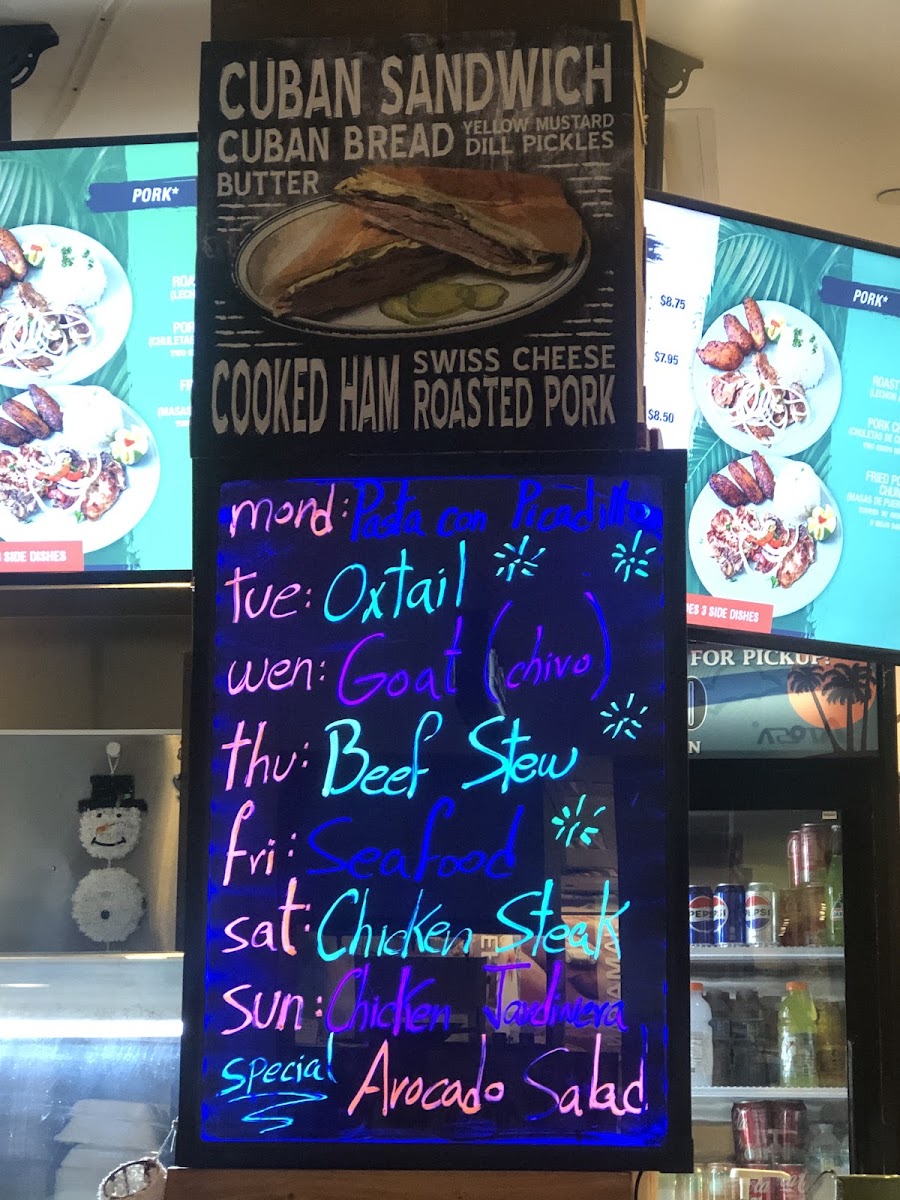 CUBAN SANDWICH
CUBAN BREAD YELLOW MUSTARD
DILL PICKLES
BUTTER
COOKED HAM SWISS CHEESE
ROASTED PORK
mond: Pasta con Picadillo
tue: Oxtail
wen: Goat (chivo)
thu: Beef Stew
fri: Seafood
sat: Chicken Steak
Sun: Chicken Jardiniera
special Avocado Salad
PORK*
SIDE DISHES
$8.75
$7.95
$8.50
PORK*
ROAST
(LECHON
PORK
(CHULETAS DE
FRIED
(MASAS DE
3 SIDE DISHES
FOR PICKUP
PEPSI
PEPSI